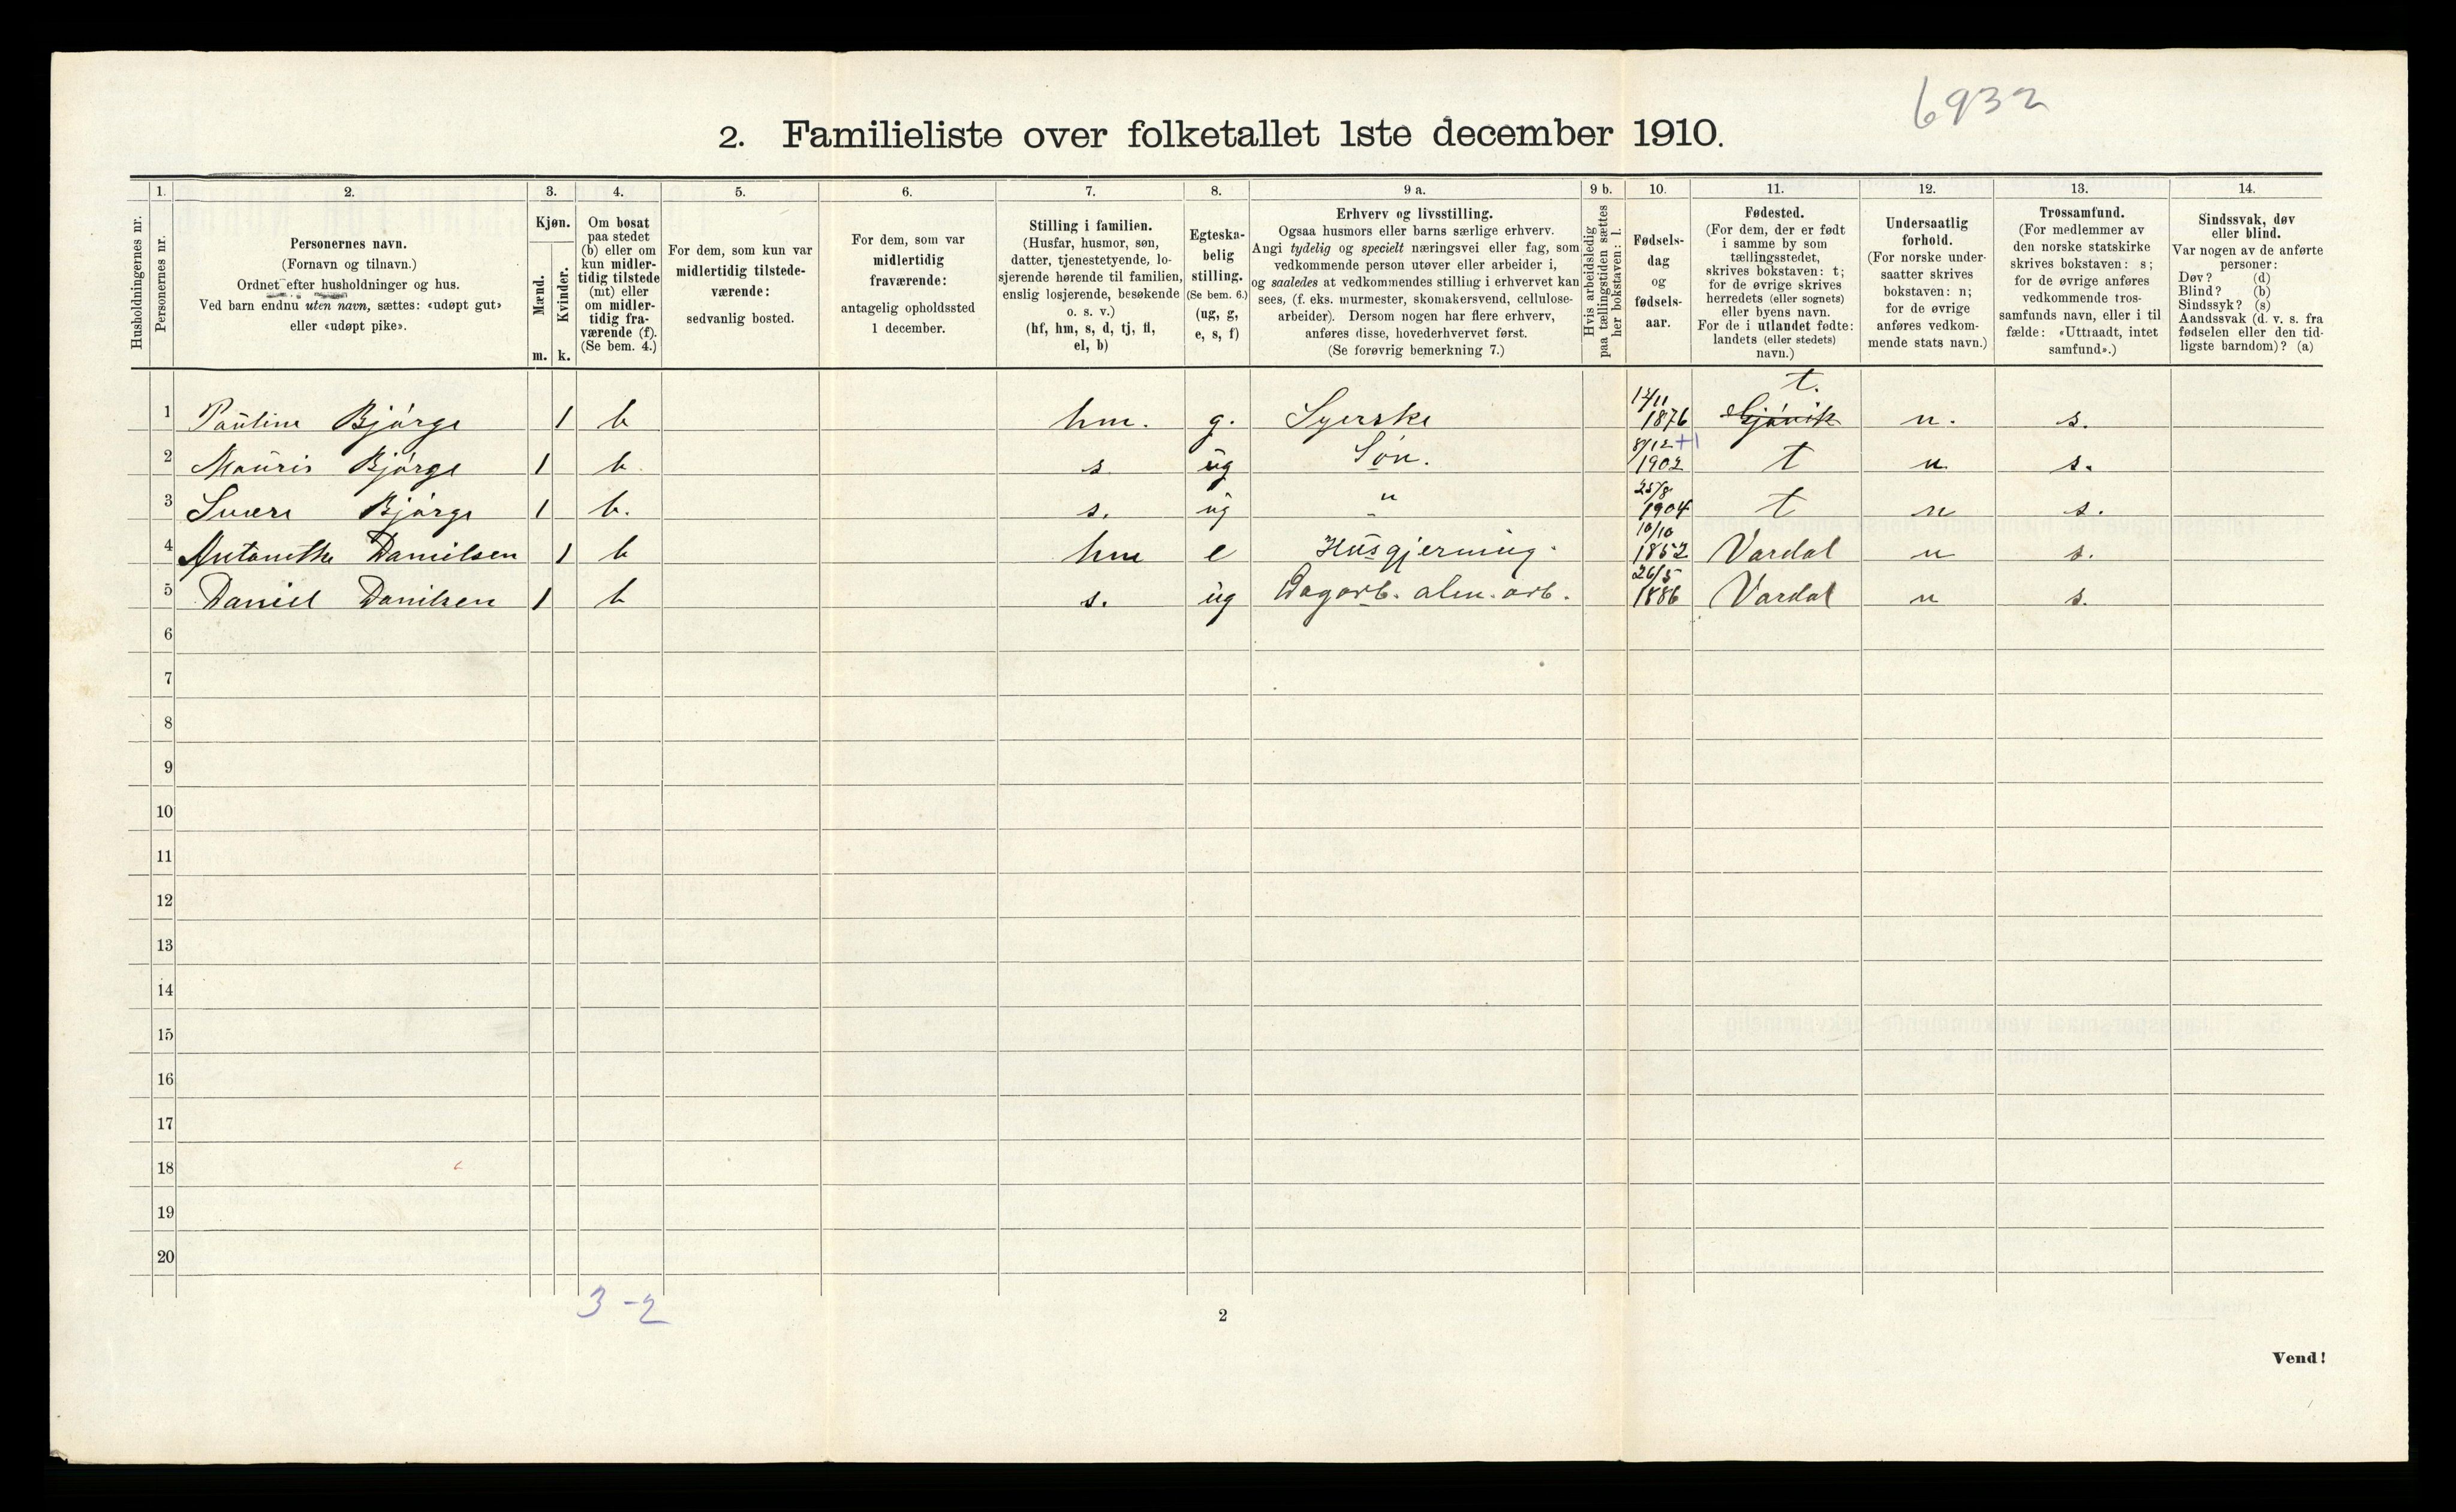 6932
2. Familieliste over folketallet 1ste december 1910.
1. 2. 3. 4. 5. 6. 7. 8. 9 a. 9 b. 10. 11. 12. 13. 14.
Husholdningernes nr.
Personernes nr.
Personernes navn.
(Fornavn og tilnavn.)
Ordnet efter husholdninger og hus.
Ved barn endnu uten navn, sættes: «udøpt gut»
eller «udøpt pike».
Kjøn.
Mænd.
Kvinder.
m. k.
Om bosat
paa stedet
(b) eller om
kun midler-
tidig tilstede
(mt) eller
om midler-
tidig fra-
værende (f).
(Se bem. 4.)
For dem, som kun var
midlertidig tilstede-
værende:
sedvanlig bosted.
For dem, som var
midlertidig
fraværende:
antagelig opholdssted
1 december.
Stilling i familien.
(Husfar, husmor, søn,
datter, tjenestetyende, lo-
sjerende hørende til familien,
enslig losjerende, besøkende
o. s. v.)
(hf, hm, s, d, tj, fl,
el, b)
Egteska-
belig
stilling.
(Se bem. 6.)
(ug, g,
e, s, f)
Erhverv og livsstilling.
Ogsaa husmors eller barns særlige erhverv.
Angi tydelig og specielt næringsvei eller fag, som
vedkommende person utøver eller arbeider i,
og saaledes at vedkommendes stilling i erhvervet kan
sees, (f. eks. murmester, skomakersvend, cellulose-
arbeider). Dersom nogen har flere erhverv,
anføres disse, hovederhvervet først.
(Se forøvrig bemerkning 7.)
Hvis arbeidsledig
paa tællingstiden sættes
her bokstaven: l.
Fødsels-
dag
og
fødsels-
aar.
Fødested.
(For dem, der er født
i samme by som
tællingsstedet,
skrives bokstaven: t;
for de øvrige skrives
herredets (eller sognets)
eller byens navn.
For de i utlandet fødte:
landets (eller stedets)
navn.)
Undersaatlig
forhold.
(For norske under-
saatter skrives
bokstaven: n;
for de øvrige
anføres vedkom-
mende stats navn.)
Trossamfund.
(For medlemmer av
den norske statskirke
skrives bokstaven: s;
for de øvrige anføres
vedkommende tros-
samfunds navn, eller i til
fælde: «Uttraadt, intet
samfund».)
Sindssvak, døv
eller blind.
Var nogen av de anførte
personer:
Døv? (d)
Blind? (b)
Sindssyk? (s)
Aandssvak (d. v. s. fra
fødselen eller den tid-
ligste barndom)? (a)
1 Pauline Bjørge 1 b hm. g. Syerske 12/11 1876 Gjøvik t. n. s.
2 Mauris Bjørge 1 b. s ug Søn. 8/12 +1 1902 t n s.
3 Sverre Bjørge 1 b. s. ug " 25/8 1904 t n s.
4 Antonette Danielsen 1 b hm e Husgjerning. 10/10 1852 Vardal n s.
5 Daniel Danilsen 1 b s. ug Dagarb. alm. arb. 26/5 1886 Vardal n s.
6
7
8
9
10
11
12
13
14
15
16
17
18
19
20
3-2
2
Vend!